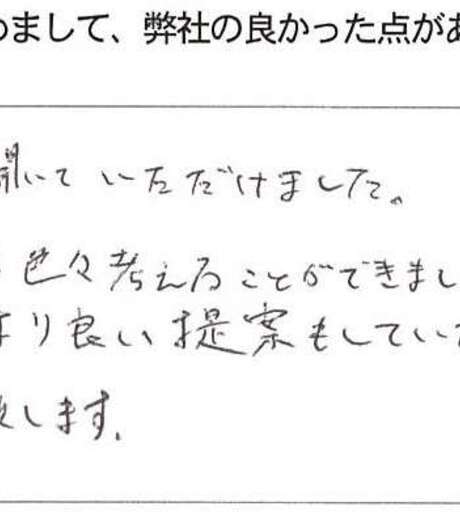 めまして、弊社の良かった点があ
聞いていただけました。
色々考えることができまし
より良い提案もしていた
致します。